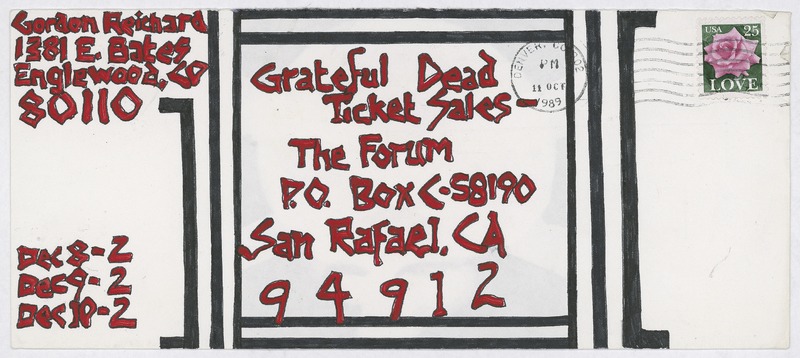 Gorden Reichard
1381 E. Bates
Englewood, CO
80110
Grateful Dead
Ticket Sales-
The Forum
P.O. Box C-S8190
San Rafael, CA
94912
Dec 8-2
Dec 9-2
Dec 10-2
DENVER, CO 802
PM
11 OCT
1989
USA 25
LOVE